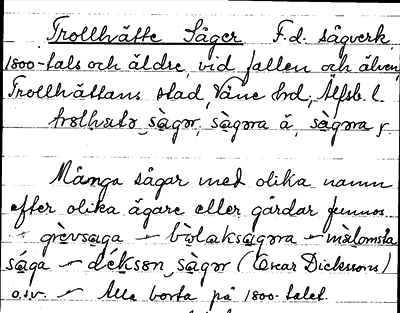 Trollhätte Sågar F.d. sågverk,
1800-tals och äldre, vid fallen och älven,
Trollhättans stad, Väne hrd, Älfsb. l.
sàgər, sàgəra å, sàgəra
Många sågar med olika namn
efter olika ägare eller gårdar funnos.
grèvsaga – bòlaksàgəra –
sága – déksən sàgər (Oscar Dicksons)
o.s.v. – Alla borta på 1800-talet.